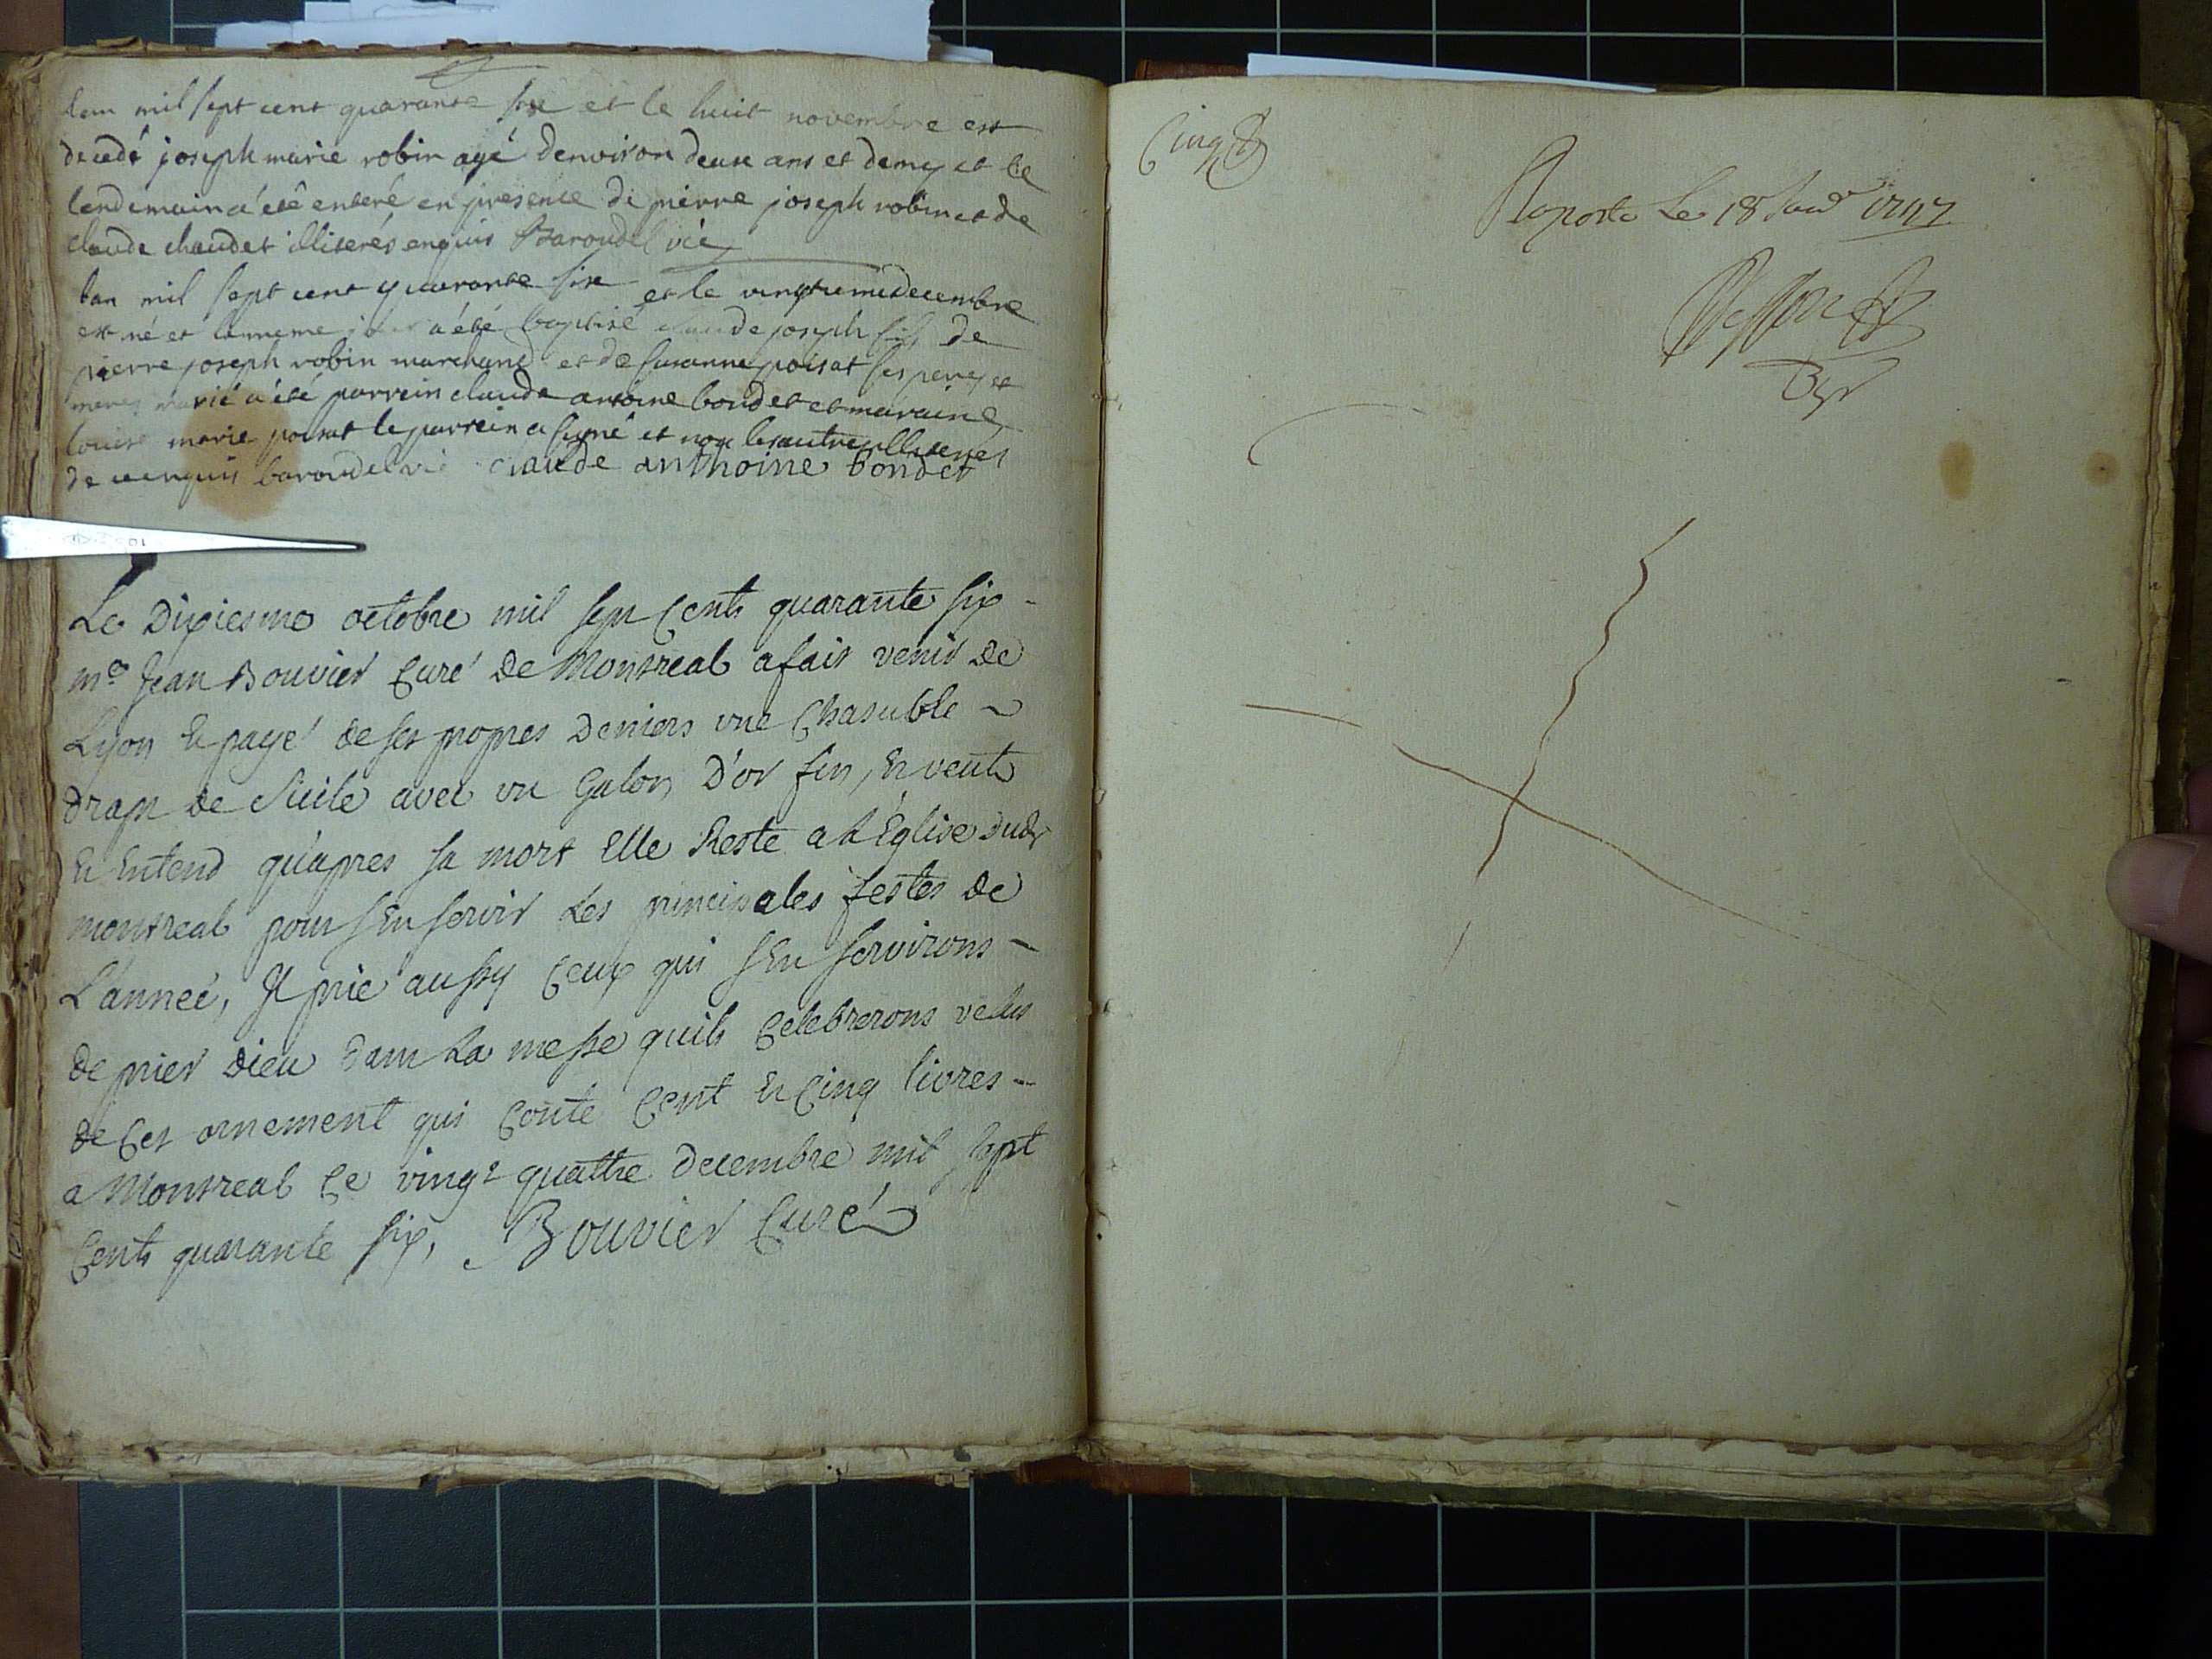 lan mil sept cent quarante six et le huit novembre est
decedé joseph marie robin agé denviron deux ans et demy et le
lendemain a été enteré en presence de pierre joseph robin et de
claude chaudet illiterés enquis Baroudel vic
lan mil sept cent quarante six et le decembre
est né et le meme jour a été baptisé claude joseph fils de
pierre joseph robin marchand et de susanne poisat ses pere et
mere marié a été parrein claude antoine bondet et maraine
louise marie poisat le parrein a signé et non les autres illiterés
de ce enquis baroudel vic claude anthoine bondet
Le Dixiesme octobre mil sept Cents quarante six
mre Jean Bouvier Curé de Montreal a fait venir de
Lyon Et payé de ses propres Deniers une Chasuble
drap de Sicile avec un Galon D'or fin, Et veut
Et Entend qu'apres sa mort Elle Reste a L'Église dudt
montreal pour sen servir Les principales festes de
L'anneé, Il prie aussy Ceux qui sen servirons
de prier Dieu dans La messe quils Celebrerons vetus
de Cet ornement qui Coute Cent Et Cinq livres
a Montreal Ce vingt quattre decembre mil sept
Cents quarante six, Bouvier Curé
Cinq
Raporté Le 18 Janv 1747